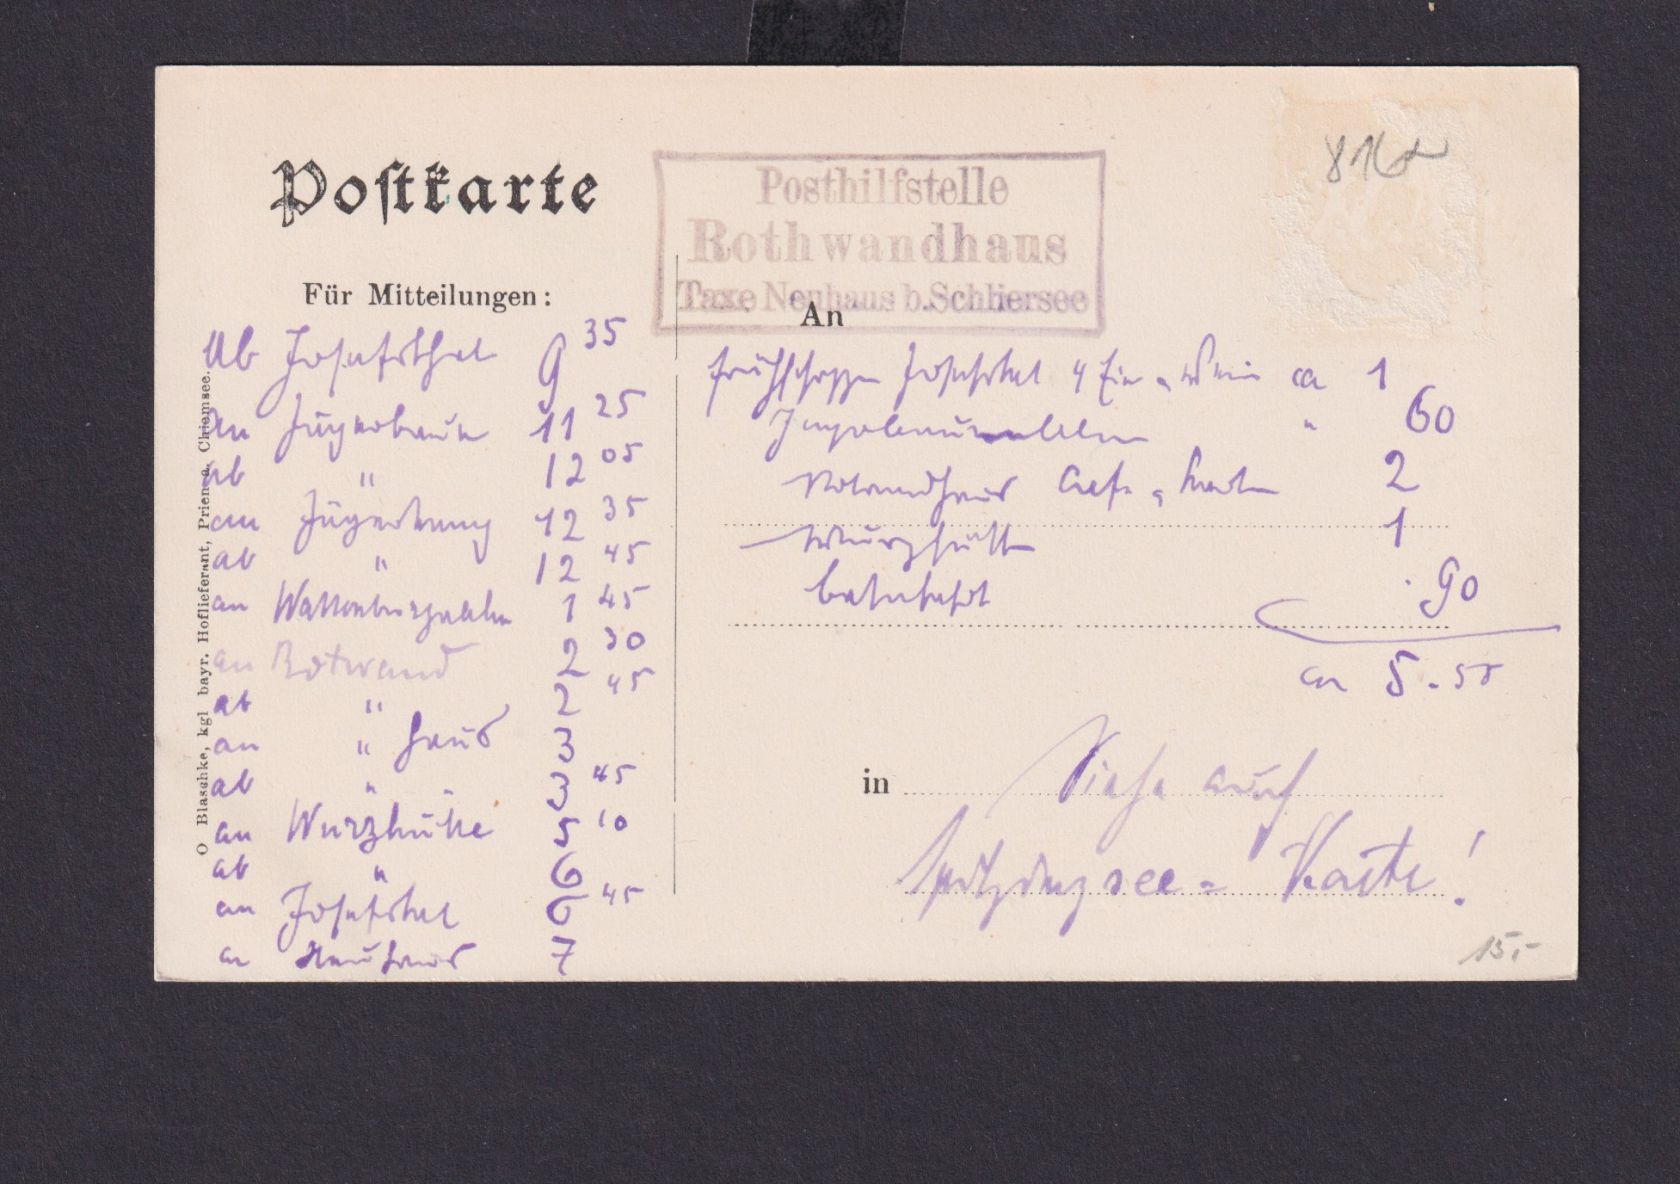 Postkarte
Für Mitteilungen:
Posthilfstelle
Rothwandhaus
Taxe Neuhaus b. Schliersee
An
O Blaschke, kgl bayr. Hoflieferant, Prien a. Chiemsee.
Ab Josefsthal 9 35
an 11 25
ab " 12 05
an 12 35
ab " 12 45
an 1 45
an Rotwand 2 30
ab " 2 45
an " Haus 3
ab " 3 45
an Wurzhütte 5 10
ab " 6
an Josefstal 6 45
an Neuhaus 7
Frühschoppen Josefstal ca 1
" 60
Rotwandhaus 2
Wurzhütte 1
Bahnfahrt . 90
ca 5.55
in
Siehe auch
Spitzingsee = Karte!
15,-